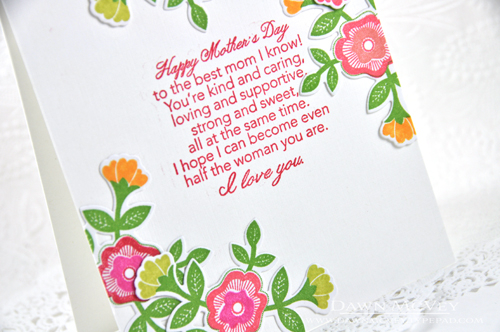 Happy Mother's Day
to the best mom I know!
You're kind and caring,
loving and supportive.
strong and sweet,
all at the same time.
I hope I can become even
half the woman you are.
I love you.